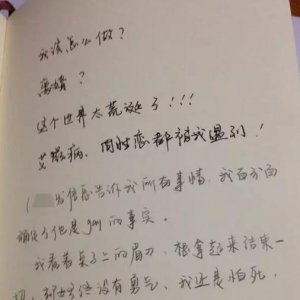 我该怎么做？
离婚？
这个世界太荒诞了！！！
艾滋病、同性恋都被我遇到！
发信息告诉我所有事情，我百分百
确定了他是gay的事实。
我看着桌子上的眉刀，想拿起来结束一
切，却始终没有勇气，我还是怕死，